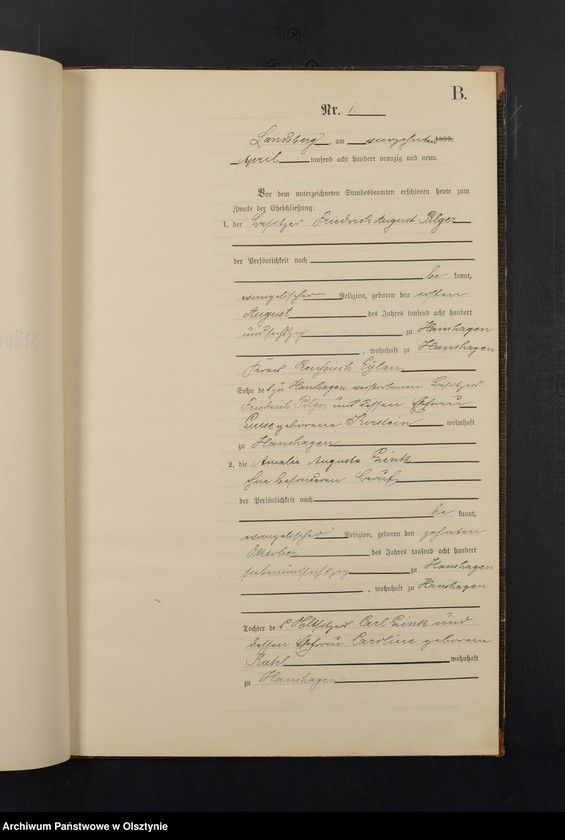 B.
Nr. 1.
Landsberg, am vierzehnten 1899.
April tausend acht hundert neunzig und neun.
Vor dem unterzeichneten Standesbeamten erschienen heute zum
Zwecke der Eheschließung:
1. der Besitzer Friedrich August Pelger
der Persönlichkeit nach
be kannt,
evangelischer Religion, geboren den ersten
August des Jahres tausend acht hundert
undsechzig zu Hanshagen
, wohnhaft zu Hanshagen
Kreis Preußisch Eylau
Sohn des zu Hanshagen verstorbenen Besitzers
Friedrich Pelger und dessen Ehefrau
Luise geborene Kerstein wohnhaft
zu Hanshagen
2. die Amalie Auguste Zink
ohne besonderen Beruf
der Persönlichkeit nach
be kannt,
evangelischer Religion, geboren den zehnten
Oktober des Jahres tausend acht hundert
siebenundsechzig zu Hanshagen
, wohnhaft zu Hanshagen
Tochter des Carl Zink und
dessen Ehefrau Caroline geborene
wohnhaft
zu Hanshagen
Archiwum Państwowe w Olsztynie